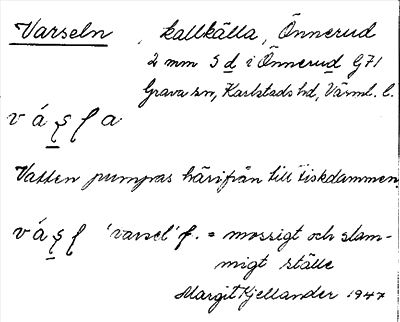 Varseln , kallkälla, Önnerud
2 mm S d i Önnerud G71
Grava sn, Karlstads hd, Värml. l.
v á ʂ ɭ a
Vatten pumpas härifrån till Fiskdammen.
v á ʂ ɭ 'varsel' f. = mossigt och slam-
migt ställe
Margit Kjellander 1947